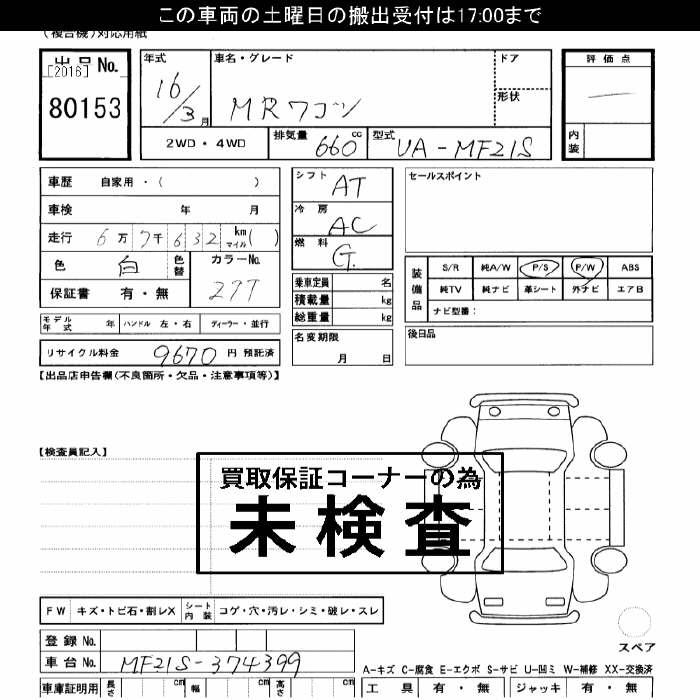 この車両の土曜日の搬出受付は17:00まで
(複合機)対応用紙
出品No.
[2016]
80153
年式
16/3月
車名・グレード
MRワゴン
ドア
形状
評価点
内装
2WD・4WD
排気量 660 cc
型式 UA-MF21S
車歴 自家用・( )
車検 年 月
走行 6万7千632 km マイル( )
色 白 色替
カラーNo.
27T
保証書 有・無
シフト AT
冷房 AC
燃料 G.
セールスポイント
乗車定員 名
積載量 kg
総重量 kg
装備品
S/R 純A/W P/S P/W ABS
純TV 純ナビ 革シート 外ナビ エアB
ナビ型番:
モデル年式 年 ハンドル 左・右 ディーラー・並行
リサイクル料金 9670 円 預託済
名変期限
月 日
後日品
【出品店申告欄(不良箇所・欠品・注意事項等)】
【検査員記入】
買取保証コーナーの為
未検査
FW キズ・トビ石・割レX シート内装 コゲ・穴・汚レ・シミ・破レ・スレ
登録No.
車台No. MF21S-374399
スペア
A-キズ C-腐食 E-エクボ S-サビ U-凹ミ W-補修 XX-交換済
車庫証明用 長さ cm 幅 cm 高さ cm
工具 有・無 ジャッキ 有・無